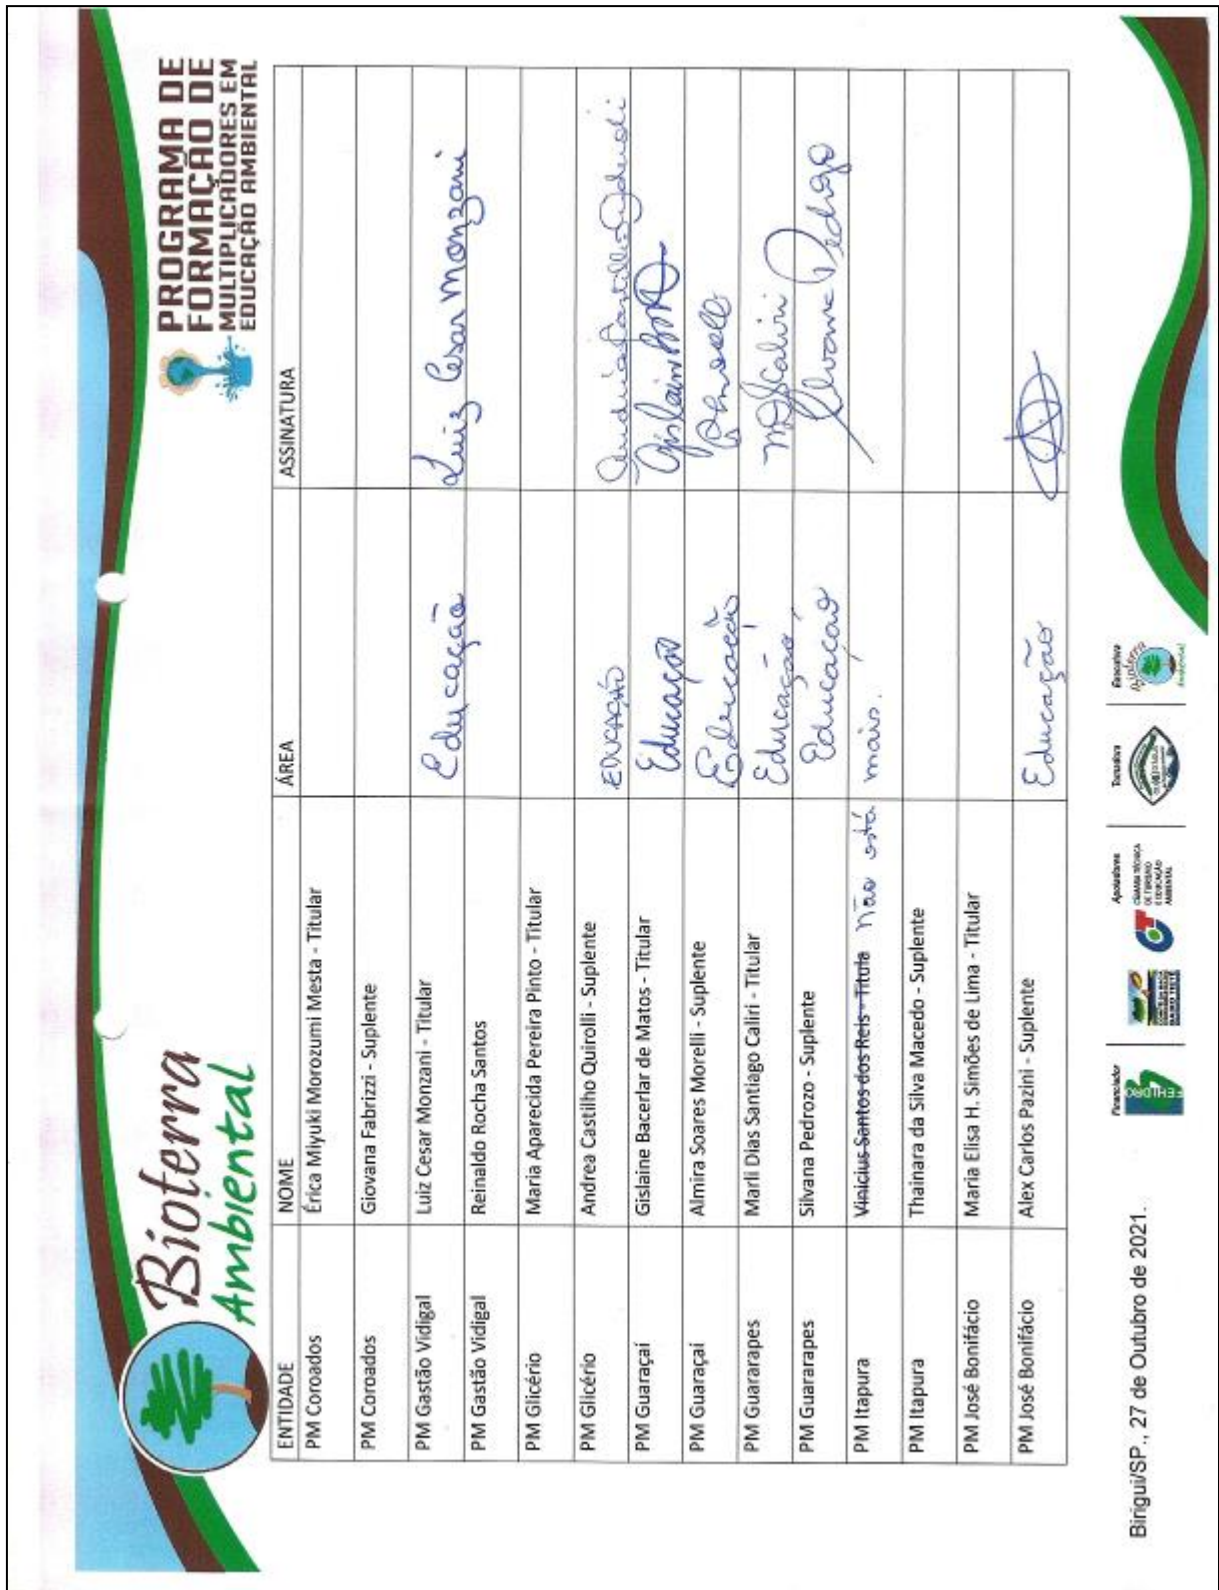 Bioterra
Ambiental
PROGRAMA DE
FORMAÇÃO DE
MULTIPLICADORES EM
EDUCAÇÃO AMBIENTAL
ENTIDADE NOME ÁREA ASSINATURA
PM Coroados Érica Miyuki Morozumi Mesta - Titular
PM Coroados Giovana Fabrizzi - Suplente
PM Gastão Vidigal Luiz Cesar Monzani - Titular Educação Luiz Cesar Monzani
PM Gastão Vidigal Reinaldo Rocha Santos
PM Glicério Maria Aparecida Pereira Pinto - Titular
PM Glicério Andrea Castilho Quirolli - Suplente EDUCAÇÃO
PM Guaraçaí Gislaine Bacerlar de Matos - Titular Educação
PM Guaraçaí Almira Soares Morelli - Suplente Educação
PM Guararapes Marli Dias Santiago Caliri - Titular Educação
PM Guararapes Silvana Pedrozo - Suplente Educação
PM Itapura Vinicius Santos dos Reis - Titula Não está mais.
PM Itapura Thainara da Silva Macedo - Suplente
PM José Bonifácio Maria Elisa H. Simões de Lima - Titular
PM José Bonifácio Alex Carlos Pazini - Suplente Educação
Birigui/SP., 27 de Outubro de 2021.
Financiador Apoiadores Tomadora Executiva
FEHIDRO
CT
CÂMARA TÉCNICA
DE TURISMO
E EDUCAÇÃO
AMBIENTAL
Bioterra
Ambiental